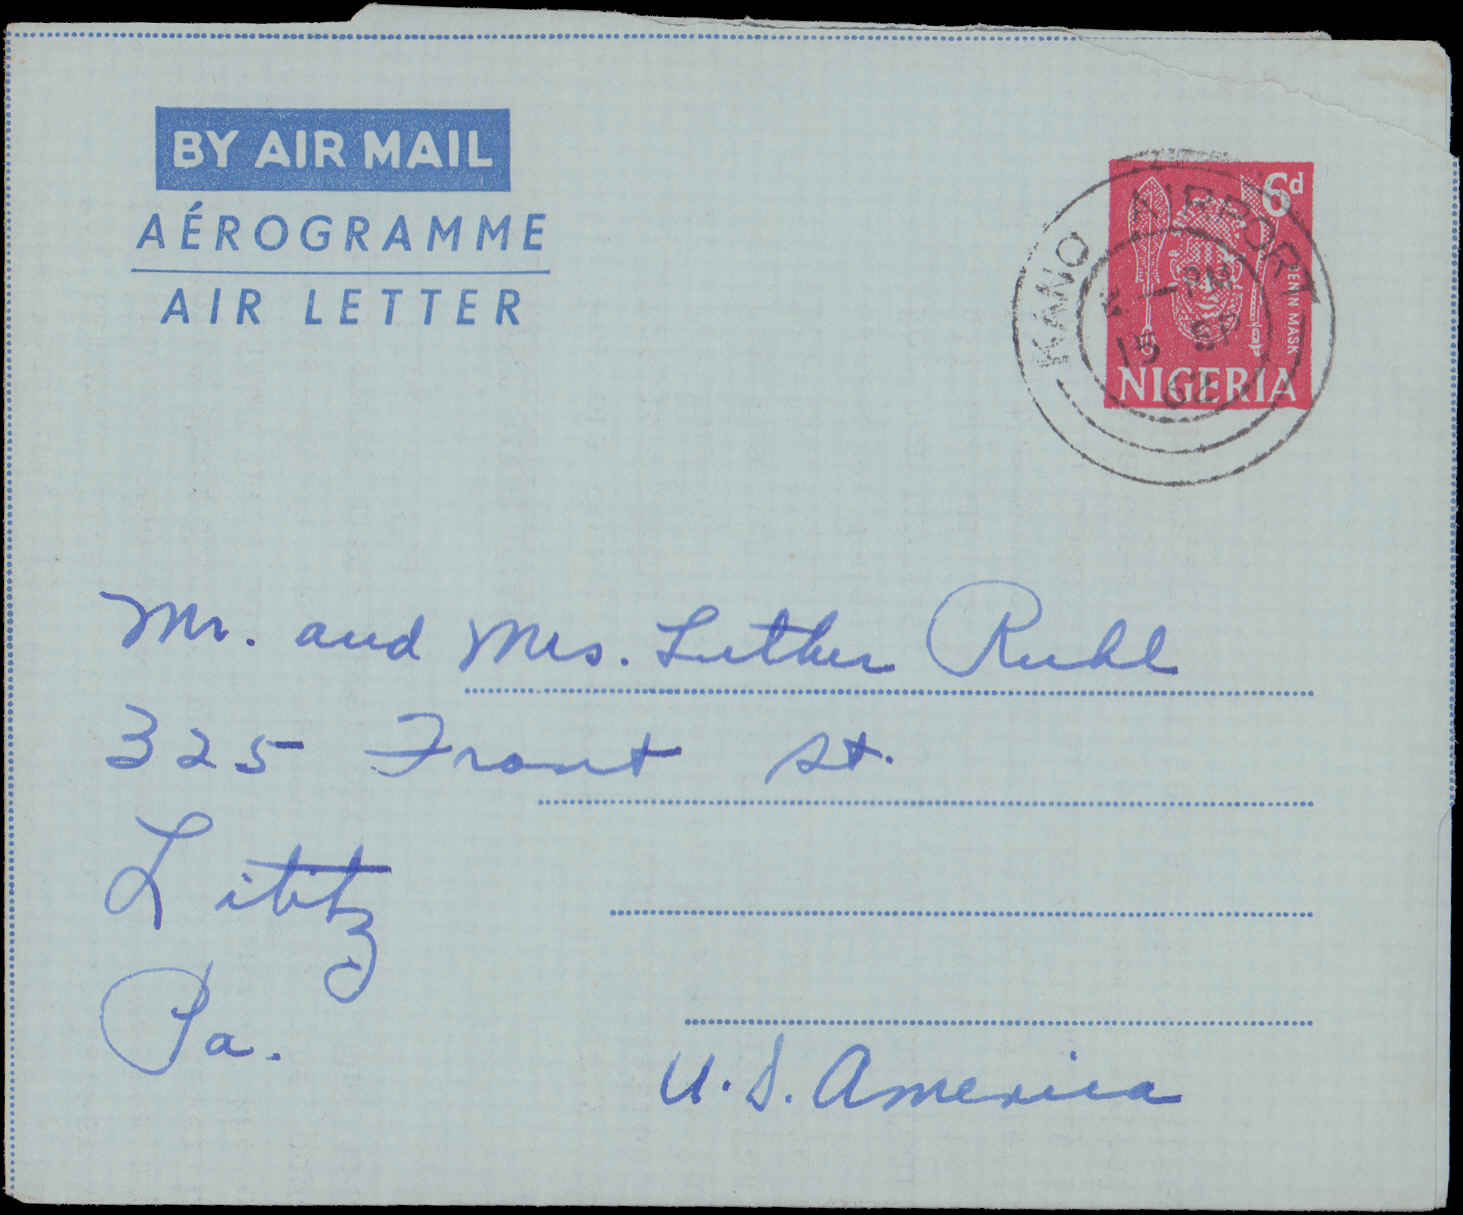 BY AIR MAIL
AÉROGRAMME
AIR LETTER
6d
BENIN MASK
NIGERIA
KANO AIRPORT
PM
15 SP
62
Mr. and Mrs. Luther Ruhl
325 Front St.
Lititz
Pa.
U.S. America